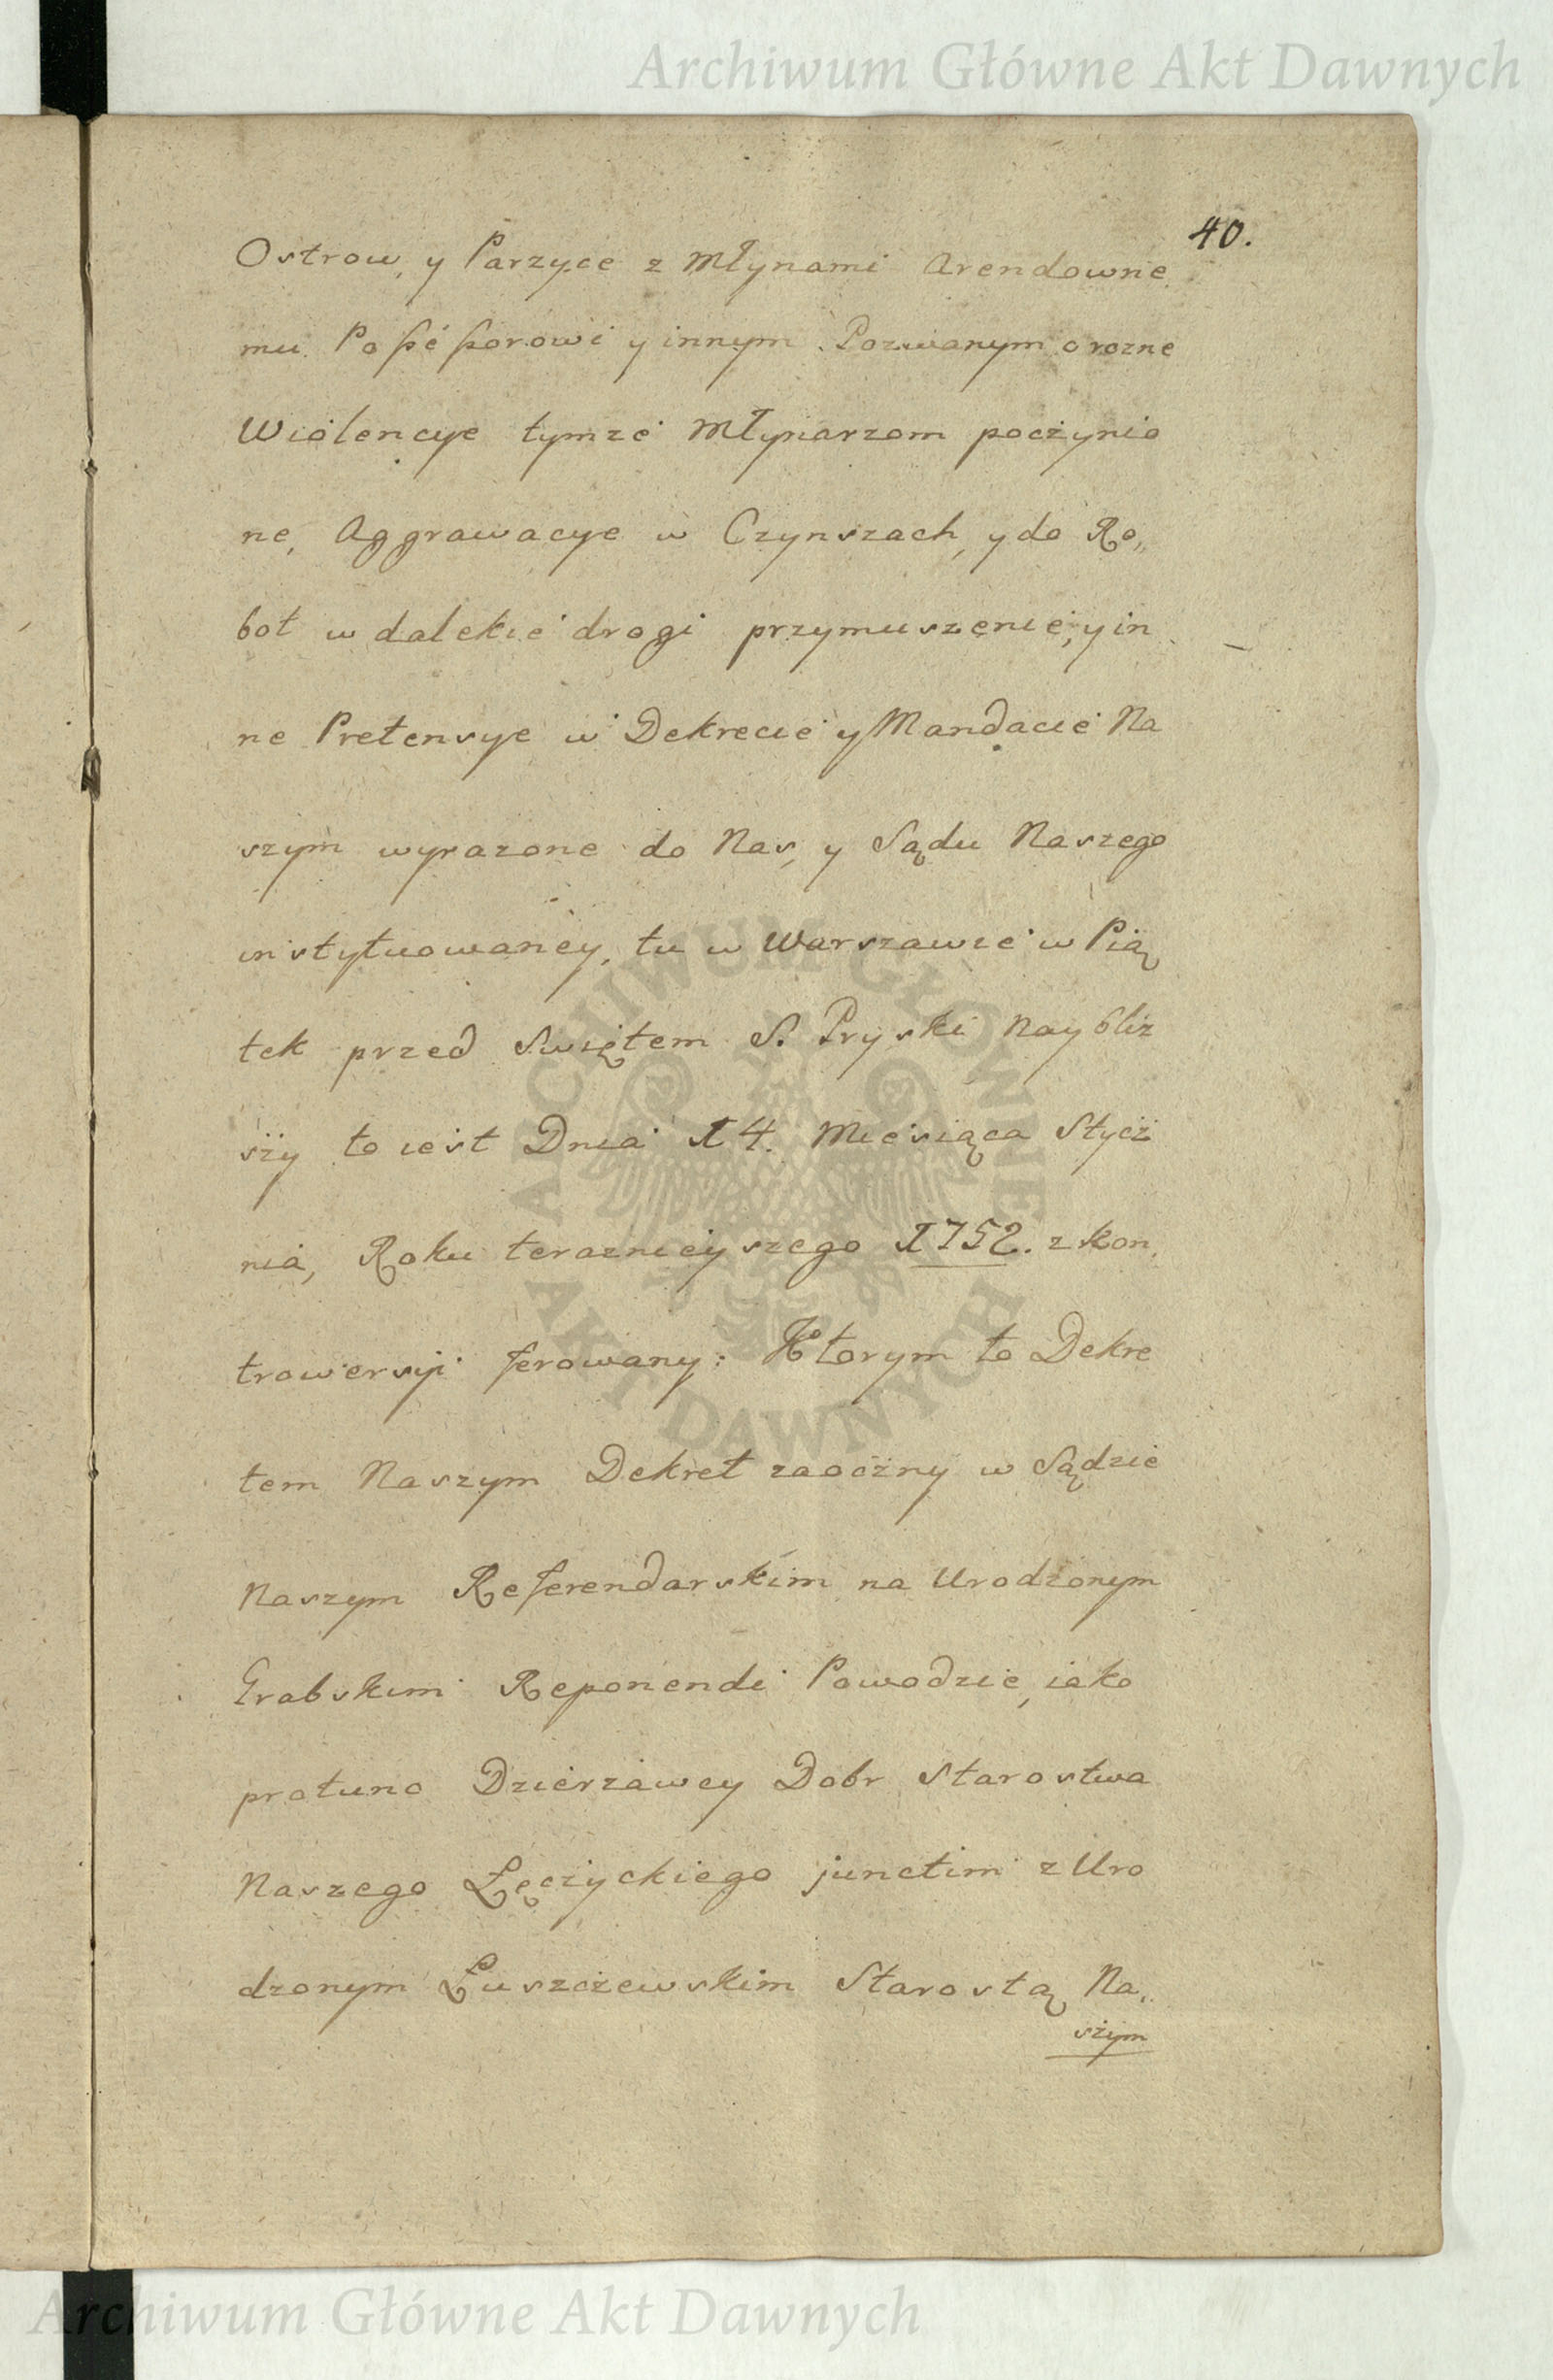 Archiwum Główne Akt Dawnych
40.
Ostrow, y Parzyce z Młynami Arendowne
mu Posseſsorowi y innym Pozwanym o rozne
Wiolencye tymze Młynarzom poczynio
ne, Aggrawacye w Czynszach, y do Ro„
bot w dalekie drogi przymuszenie, y in
ne Pretensye w Dekrecie y Mandacie Na
szym wyrazone do Nas, y Sądu Naszego
instytuowaney, tu w Warszawie w Pią
tek przed Swiętem S. Pryski naybliz
szy to iest Dnia 14. Miesiąca Stycz
nia, Roku teraznieyszego 1752. z kon
trowersyi ferowany: Ktorym to Dekre
tem Naszym Dekret zaoczny w Sądzie
Naszym Referendarskim na Urodzonym
Grabskim Reponendi Powodzie, iako
protunc Dzierzawcy Dobr Starostwa
Naszego Łęczyckiego junctim z Uro
dzonym Łuszczewskim Starostą Na„
szym
ARCHIWUM GŁÓWNE
AKT DAWNYCH
Archiwum Główne Akt Dawnych